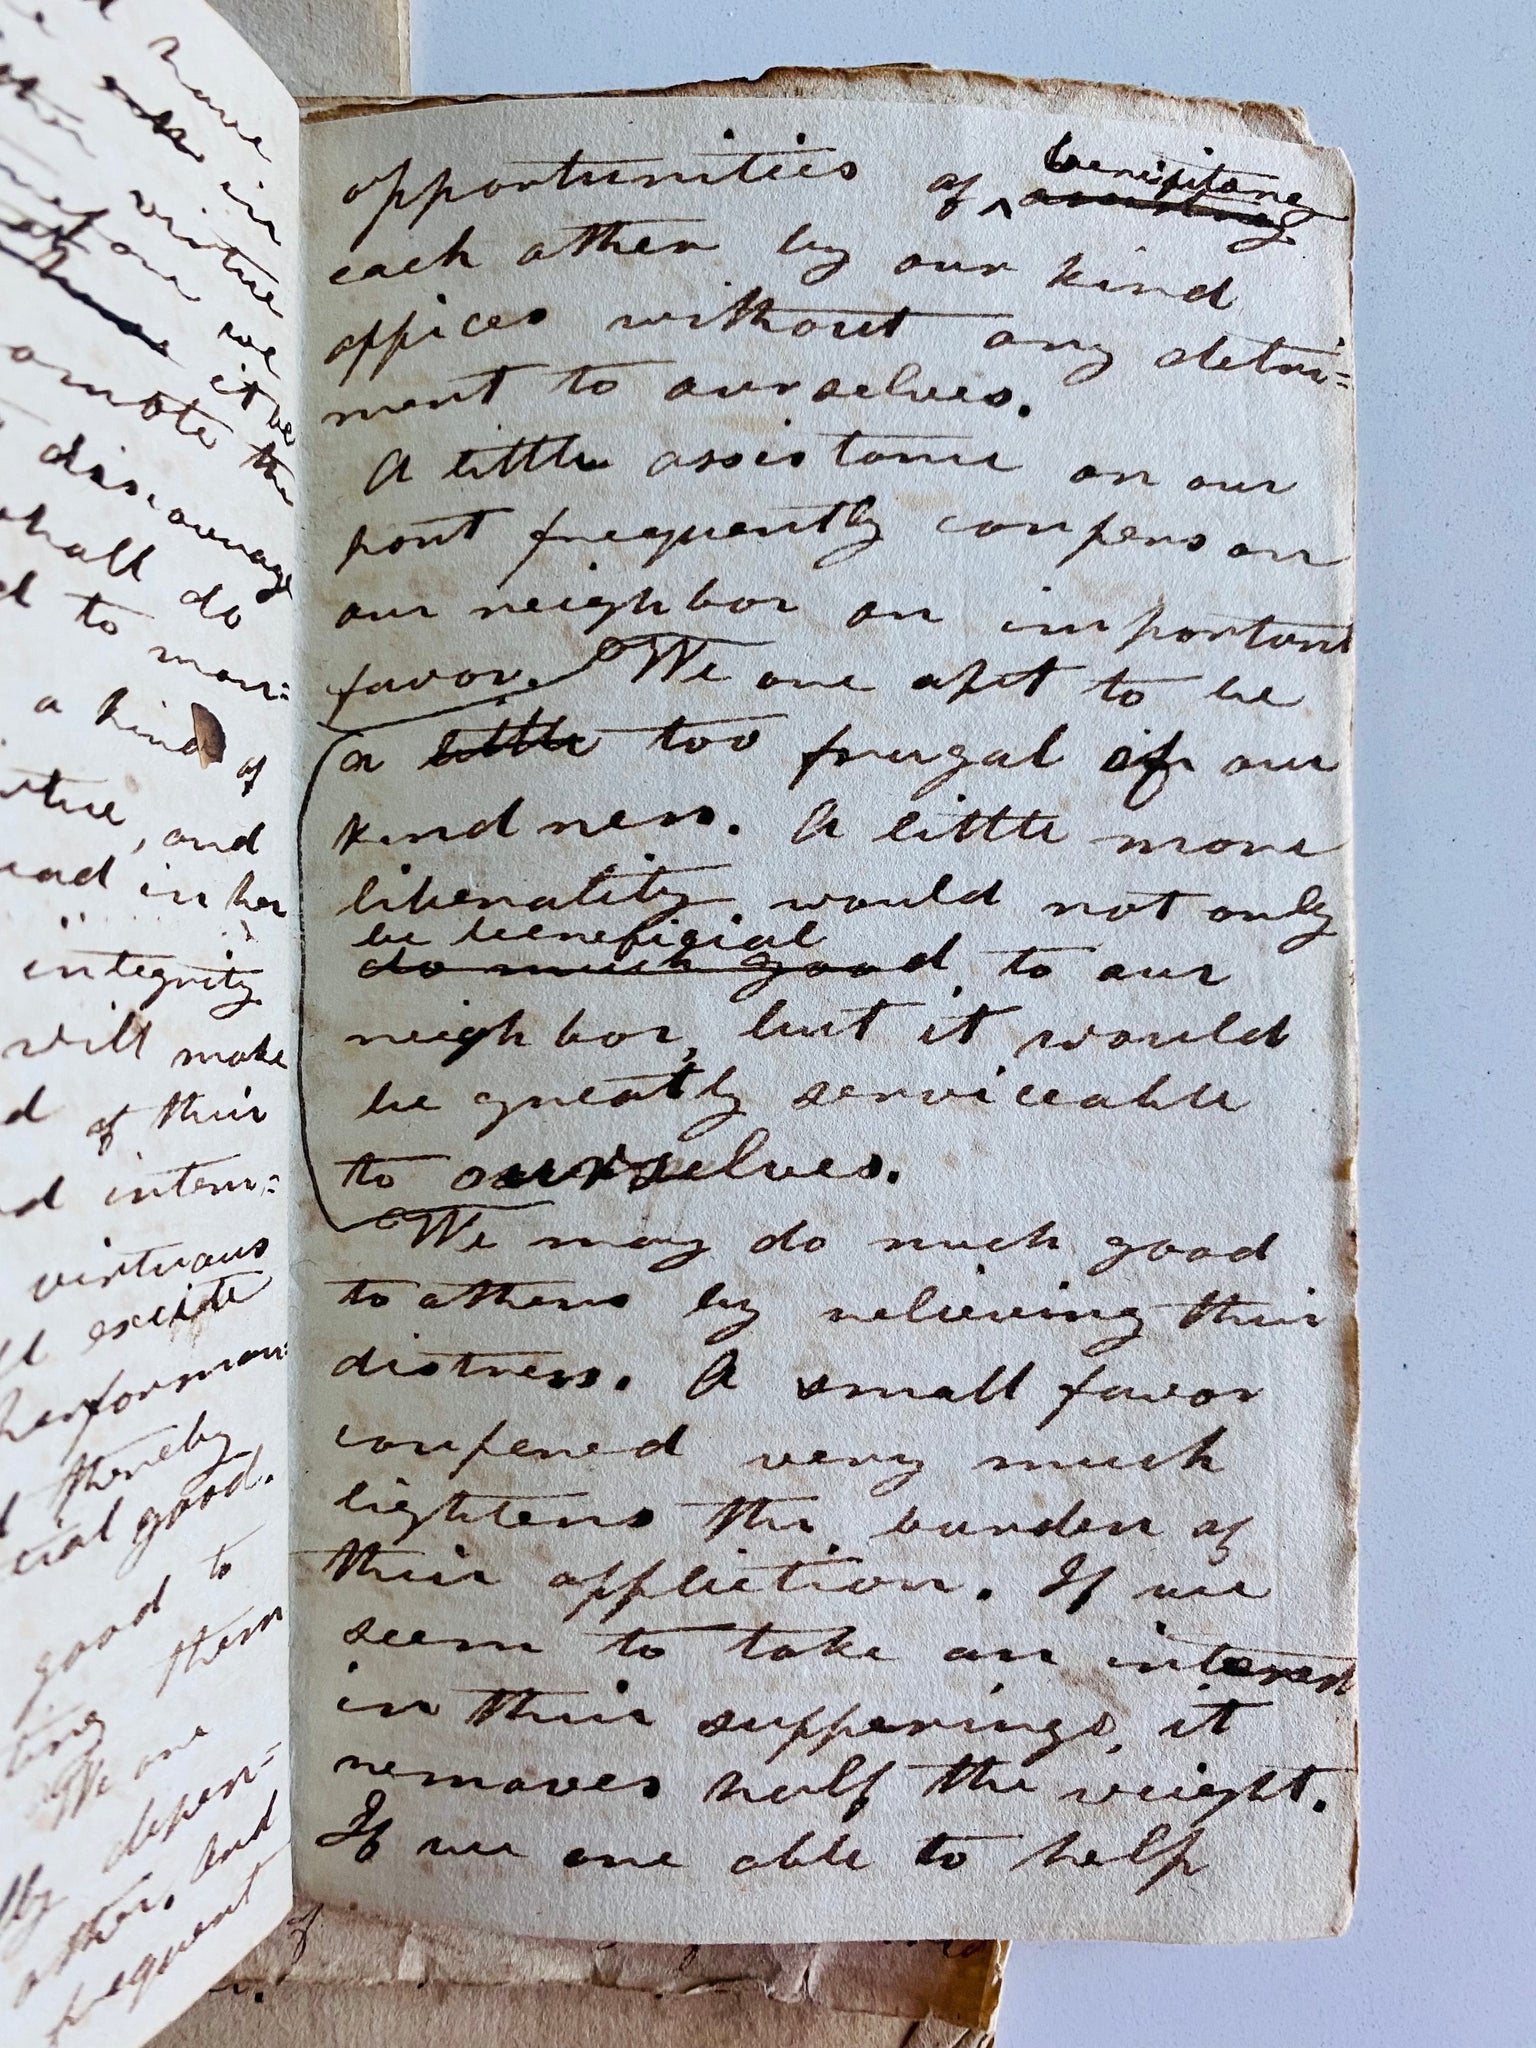 have
in
virtue
we
it be
omote the
discourage
shall do
d to man=
a kind of
rtue, and
ead in her
integrity
will make
d of their
d intem=
virtuous
ll excite
performan=
d thereby
cial good.
good to
them
We are
depen=
other. And
frequent
opportunities of ^ benifiting
each other by our kind
offices without any detri=
ment to ourselves.
A little assistance on our
part frequently confers on
our neighbor an important
favor. We are apt to be
a little too frugal of our
kindness. A little more
liberality would not only
be beneficial
do much good to our
neighbor, but it would
be greatly serviceable
to ourselves.
We may do much good
to others by relieving their
distress. A small favor
confered very much
lightens the burden of
their affliction. If we
seem to take an interest
in their sufferings, it
removes half the weight.
If we are able to help